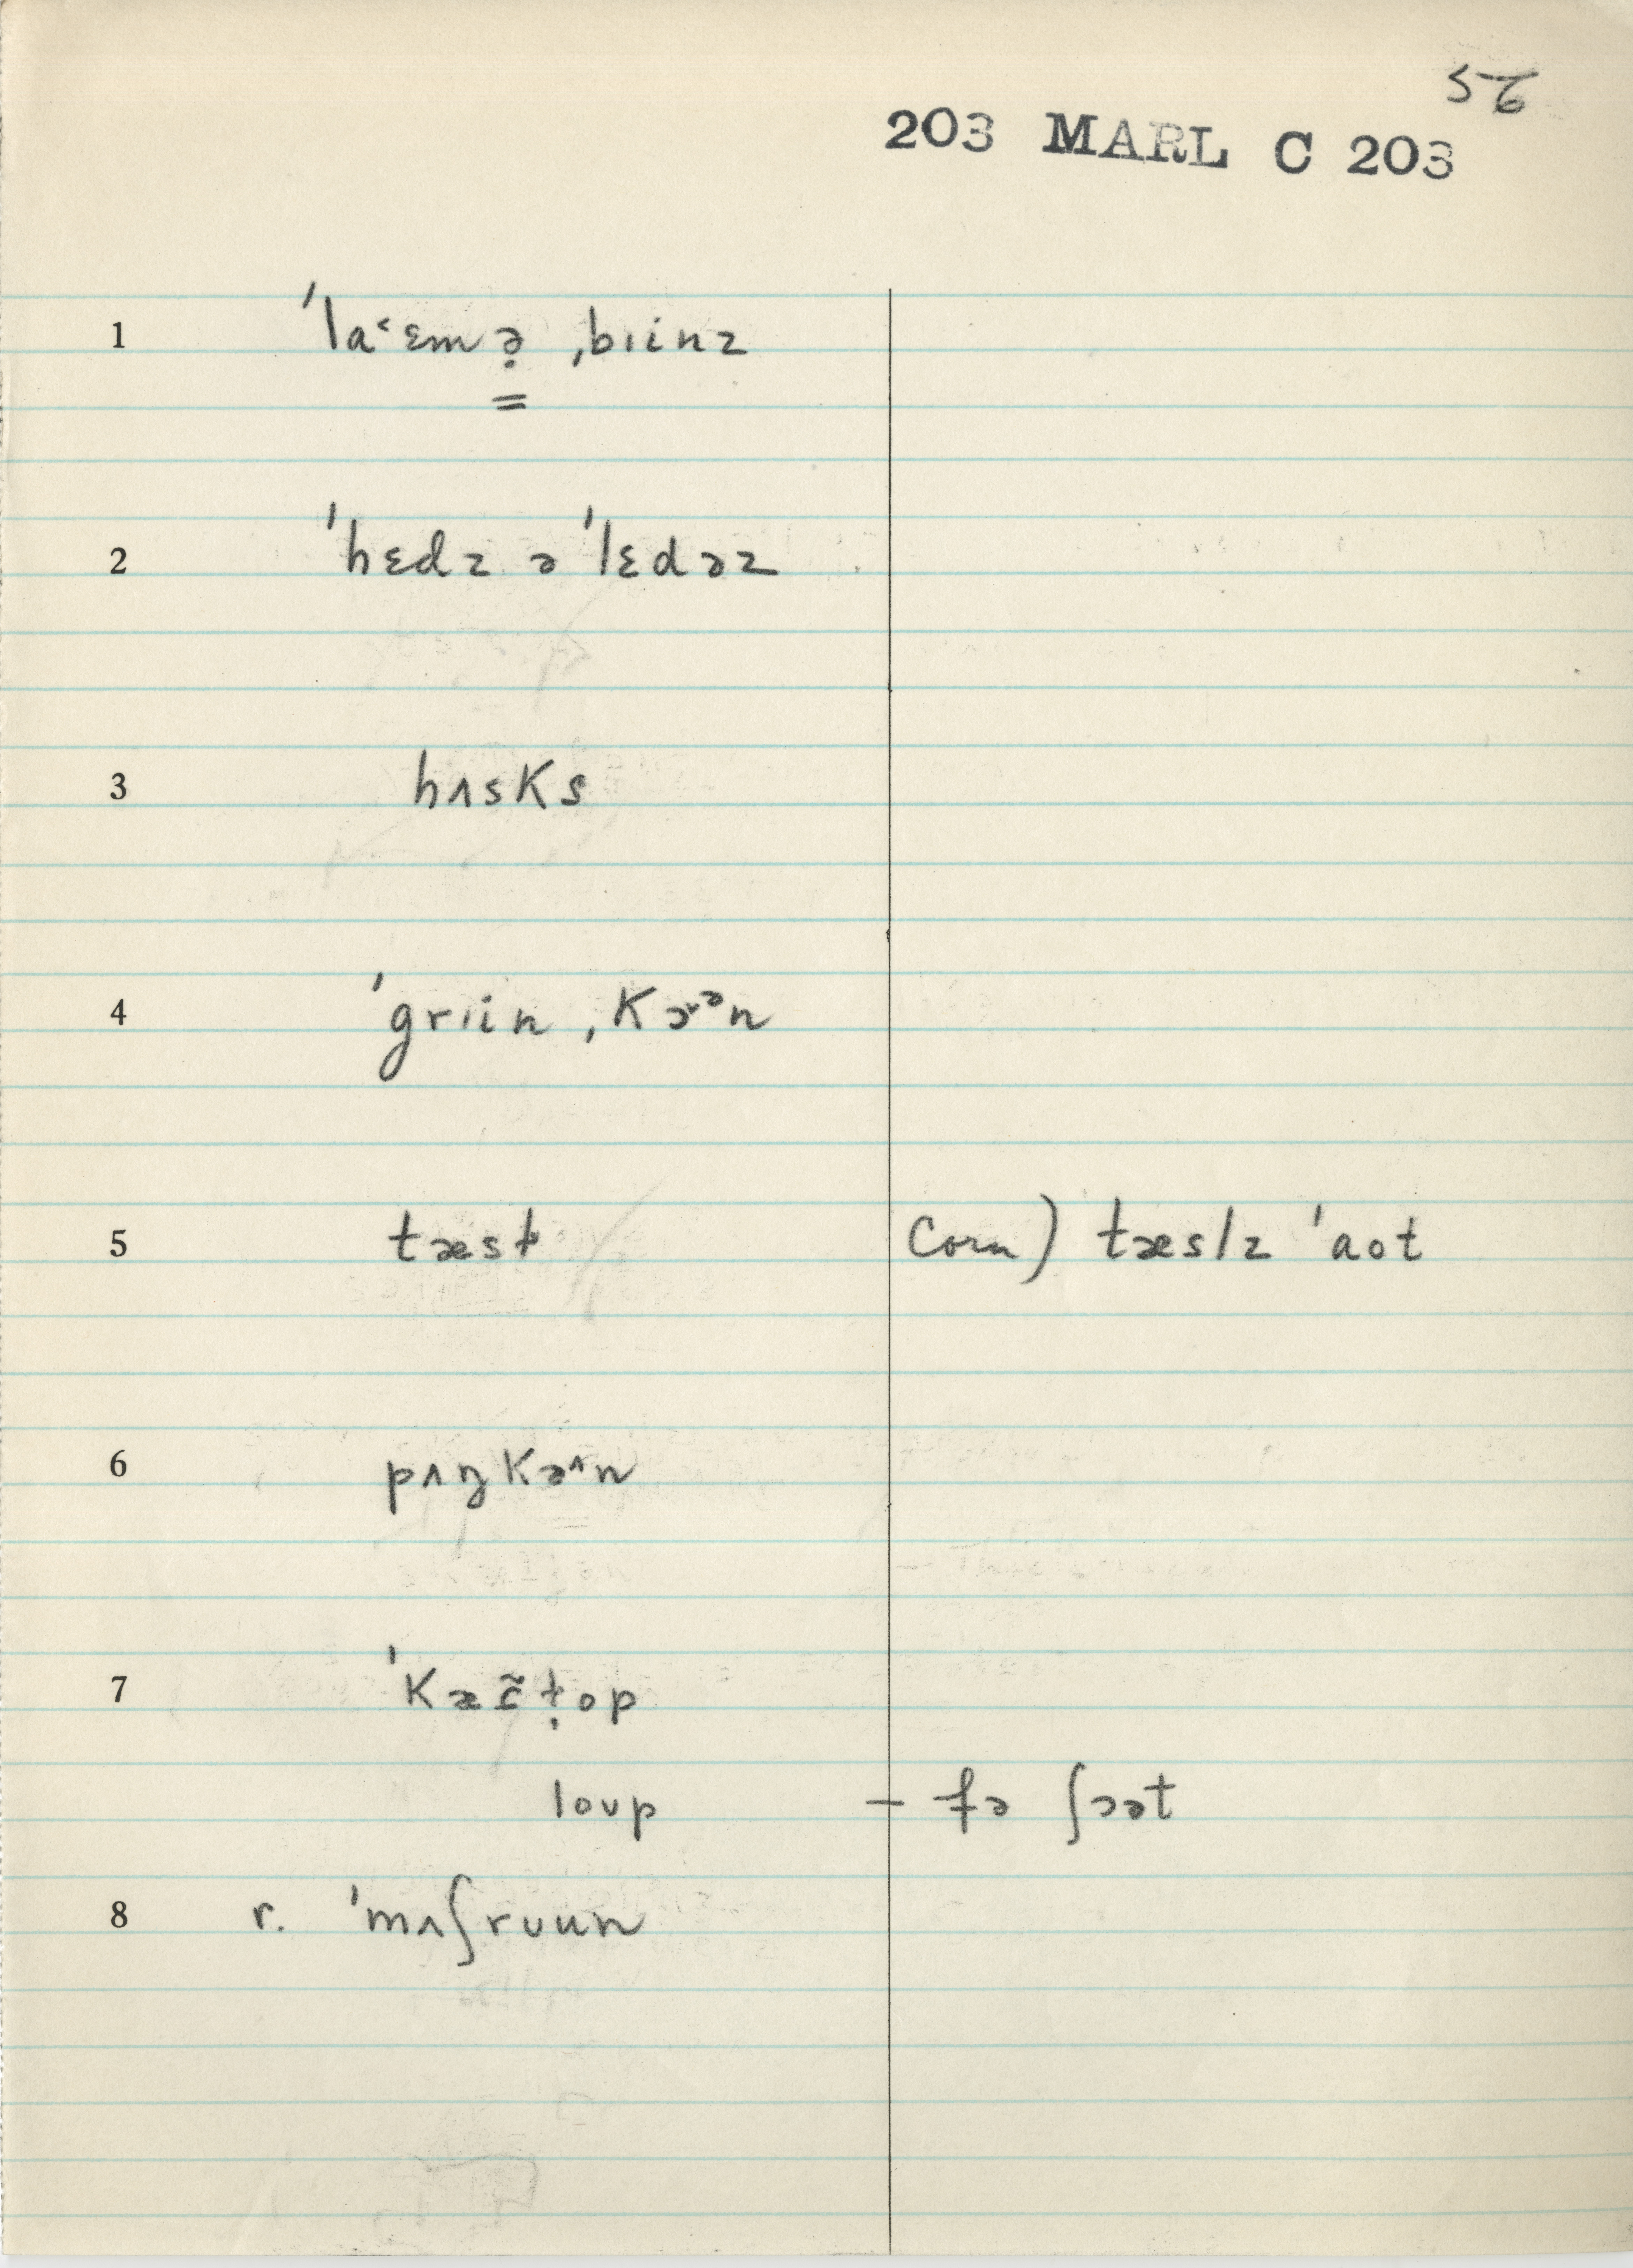 56
203 MARL C 203
1 ˈla˂ɛmə̣ ˌbɪinz
2 ˈhɛdz ə ˈlɛdəz
3 hʌsks
4 ˈgrɪin ˌkɔʳᵊn
5 tæsɫ Corn) tæslz ˈaot
6 pʌŋkəˆn
7 ˈkæɛ̃ṭop
loʊp – fə ʃɔət
8 r. ˈmʌʃrʊun